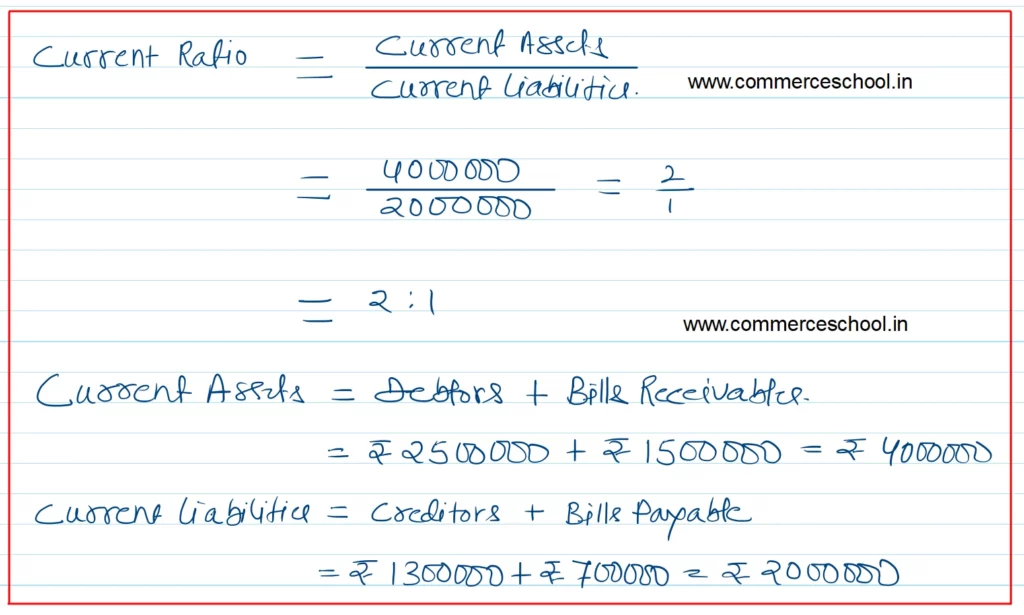 Current Ratio = Current Assets
Current Liabilities.
www.commerceschool.in
= 4000000 = 2
2000000 1
= 2 : 1
www.commerceschool.in
Current Assets = Debtors + Bills Receivables.
= ₹ 2500000 + ₹ 1500000 = ₹ 4000000
Current Liabilities = Creditors + Bills Payable
= ₹ 1300000 + ₹ 700000 = ₹ 2000000